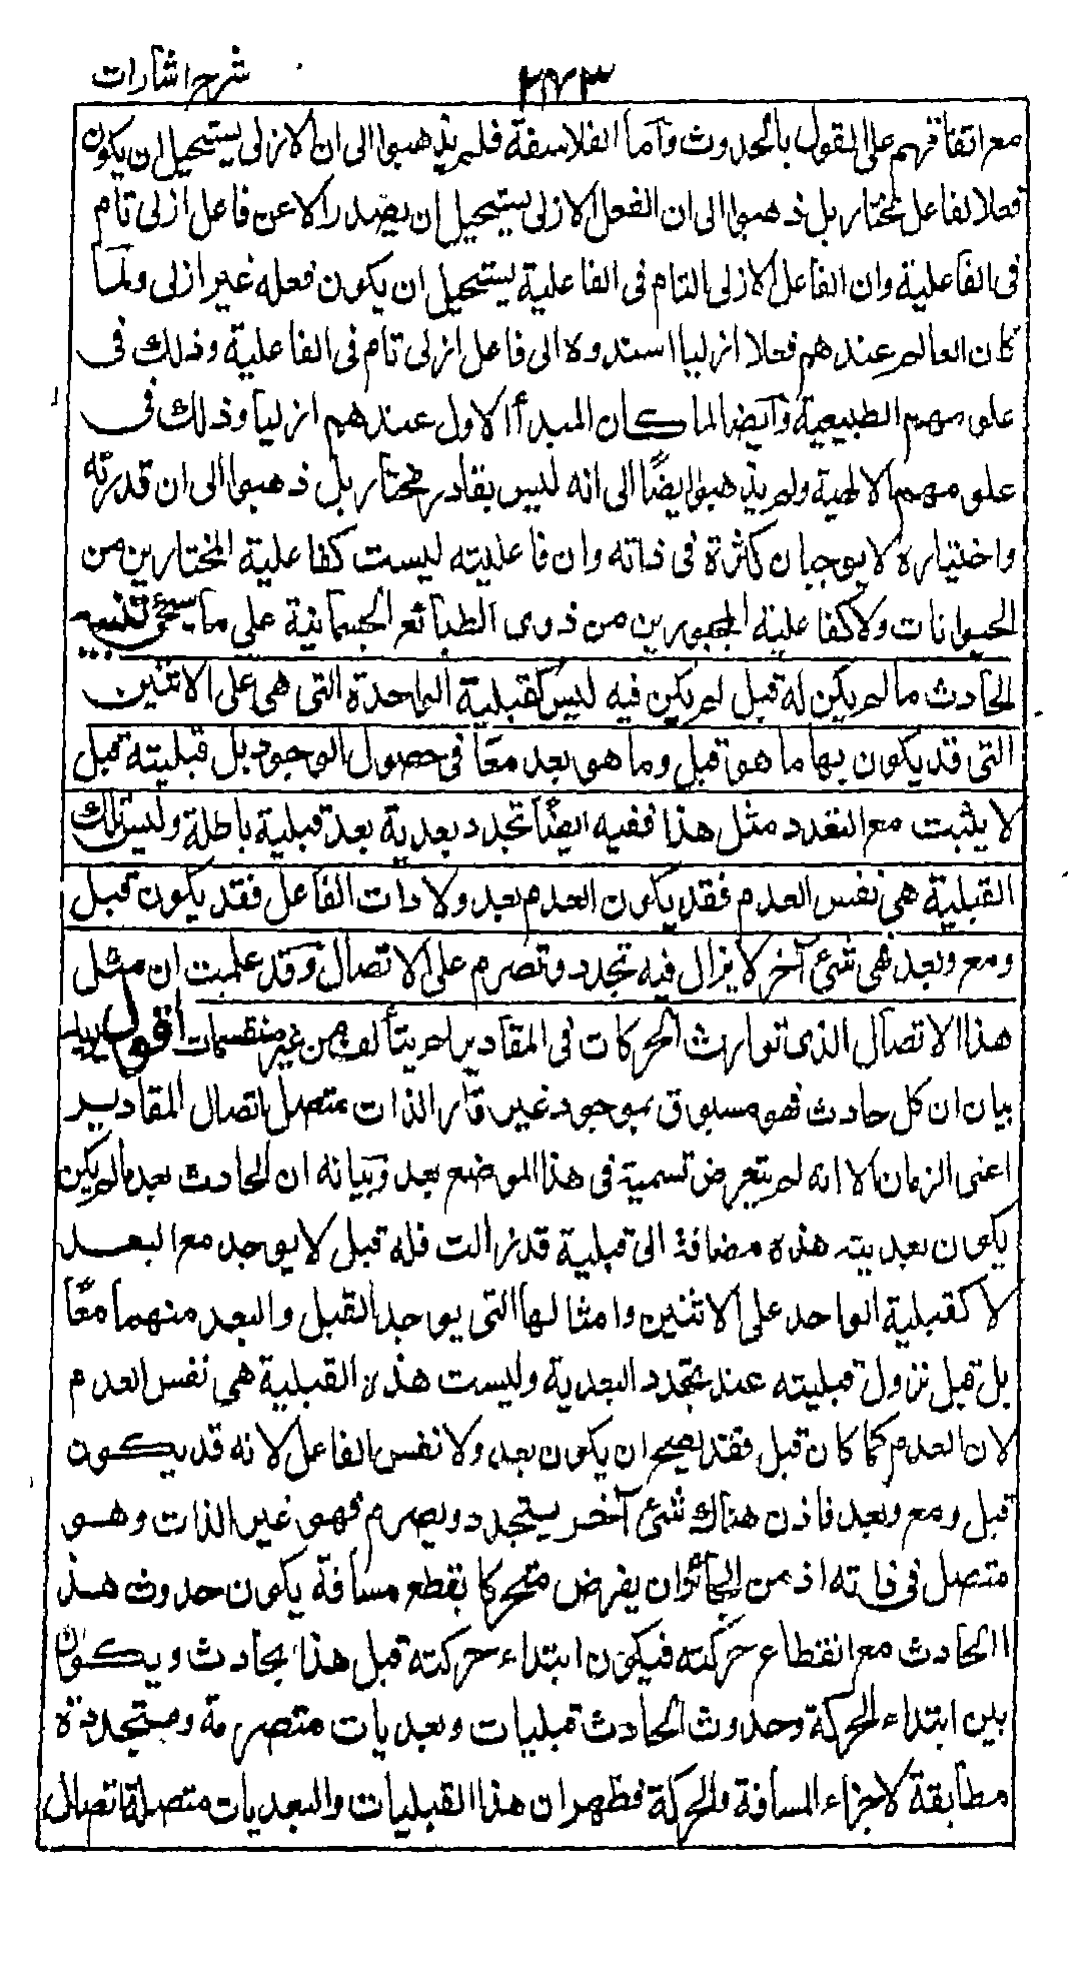 ٢٧٣
شرح اشارات
مع اتفاقهم على القول بالحدوث وأما الفلاسفة فلم يذهبوا الى ان الازلى يستحيل ان يكون
فعلا لفاعل مختار بل ذهبوا الى ان الفعل الازلى يستحيل ان يصدر الا عن فاعل ازلى تام
فى الفاعلية وان الفاعل الازلى التام فى الفاعلية يستحيل ان يكون فعله غير ازلى ولما
كان العالم عندهم فعلا ازليا اسندوه الى فاعل ازلى تام فى الفاعلية وذلك فى
علومهم الطبيعية وأيضا لما كان المبدأ الاول عندهم ازليا وذلك فى
علومهم الالهية ولم يذهبوا ايضًا الى انه ليس بقادر مختار بل ذهبوا الى ان قدرته
واختياره لا يوجبان كثرة فى ذاته وان فاعليته ليست كفاعلية المختارين من
الحيوانات ولا كفاعلية المجبورين من ذوى الطبائع الجسمانية على ما سيجئ تنبيه
الحادث ما لم يكن له قبل لم يكن فيه ليس كقبلية الواحدة التى هى على الاثنين
التى قد يكون بها ما هو قبل وما هو بعد معًا فى حصول الوجود بل قبليته قبل
لا يثبت مع التعدد مثل هذا ففيه ايضًا تجدد بعدية بعد قبلية باطلة وليس تلك
القبلية هى نفس العدم فقد يكون العدم بعد ولا ذات الفاعل فقد يكون قبل
ومع وبعد فهى شئ آخر لا يزال فيه تجدد وتصرم على الاتصال وقد علمت ان مثل
هذا الاتصال الذى توازيه الحركات فى المقادير لم يتألف من غير منقسمات اقول يريد
بيان ان كل حادث فهو مسبوق بموجود غير قار الذات متصل اتصال المقادير
اعنى الزمان الا انه لم يتعرض تسميته فى هذا الموضع بعد وبيانه ان الحادث بعد ما لم يكن
يكون بعديته هذه مضافة الى قبلية قد زالت فله قبل لا يوجد مع البعد
لا كقبلية الواحد على الاثنين وامثالها التى يوجد القبل والبعد منهما معًا
بل قبل تزول قبليته عند تجدد البعدية وليست هذه القبلية هى نفس العدم
لان العدم كما كان قبل فقد يصح ان يكون بعد ولا نفس الفاعل لانه قد يكون
قبل ومع وبعد فاذن هناك شئ آخر يتجدد ويصرم فهو غير الذات وهو
متصل فى ذاته اذ من الجائز ان يفرض متحركا بقطع مسافة يكون حدوث هذ
الحادث مع انقطاع حركته فيكون ابتداء حركته قبل هذا الحادث ويكون
بين ابتداء الحركة وحدوث الحادث قبليات وبعديات متصرمة ومتجددة
مطابقة لاجزاء المسافة والحركة فظهر ان هذا القبليات والبعديات متصلة اتصال